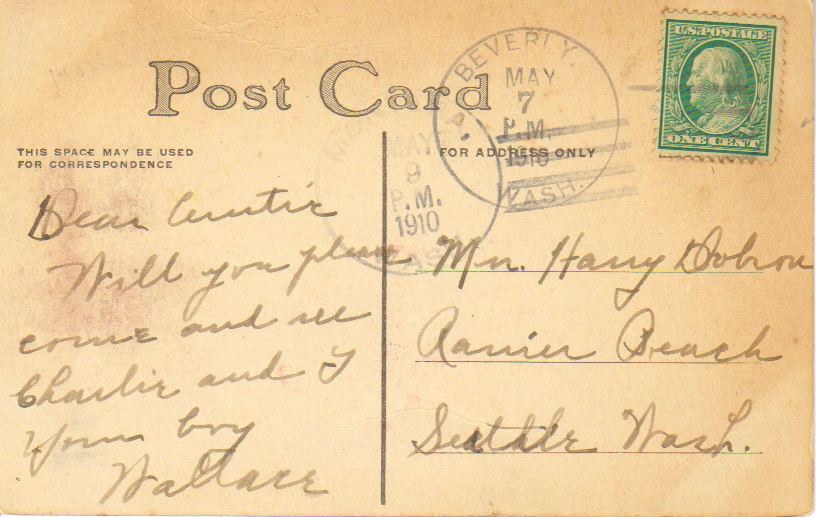 Post Card
THIS SPACE MAY BE USED
FOR CORRESPONDENCE
FOR ADDRESS ONLY
BEVERLY,
MAY
7
P.M.
1910
WASH.
A.
MAY
9
P.M.
1910
WASH.
U.S. POSTAGE
ONE CENT
Dear Auntie
Will you please
come and see
Charlie and I
your boy
Wallace
Mrs. Harry Dobson
Ranier Beach
Seattle Wash.